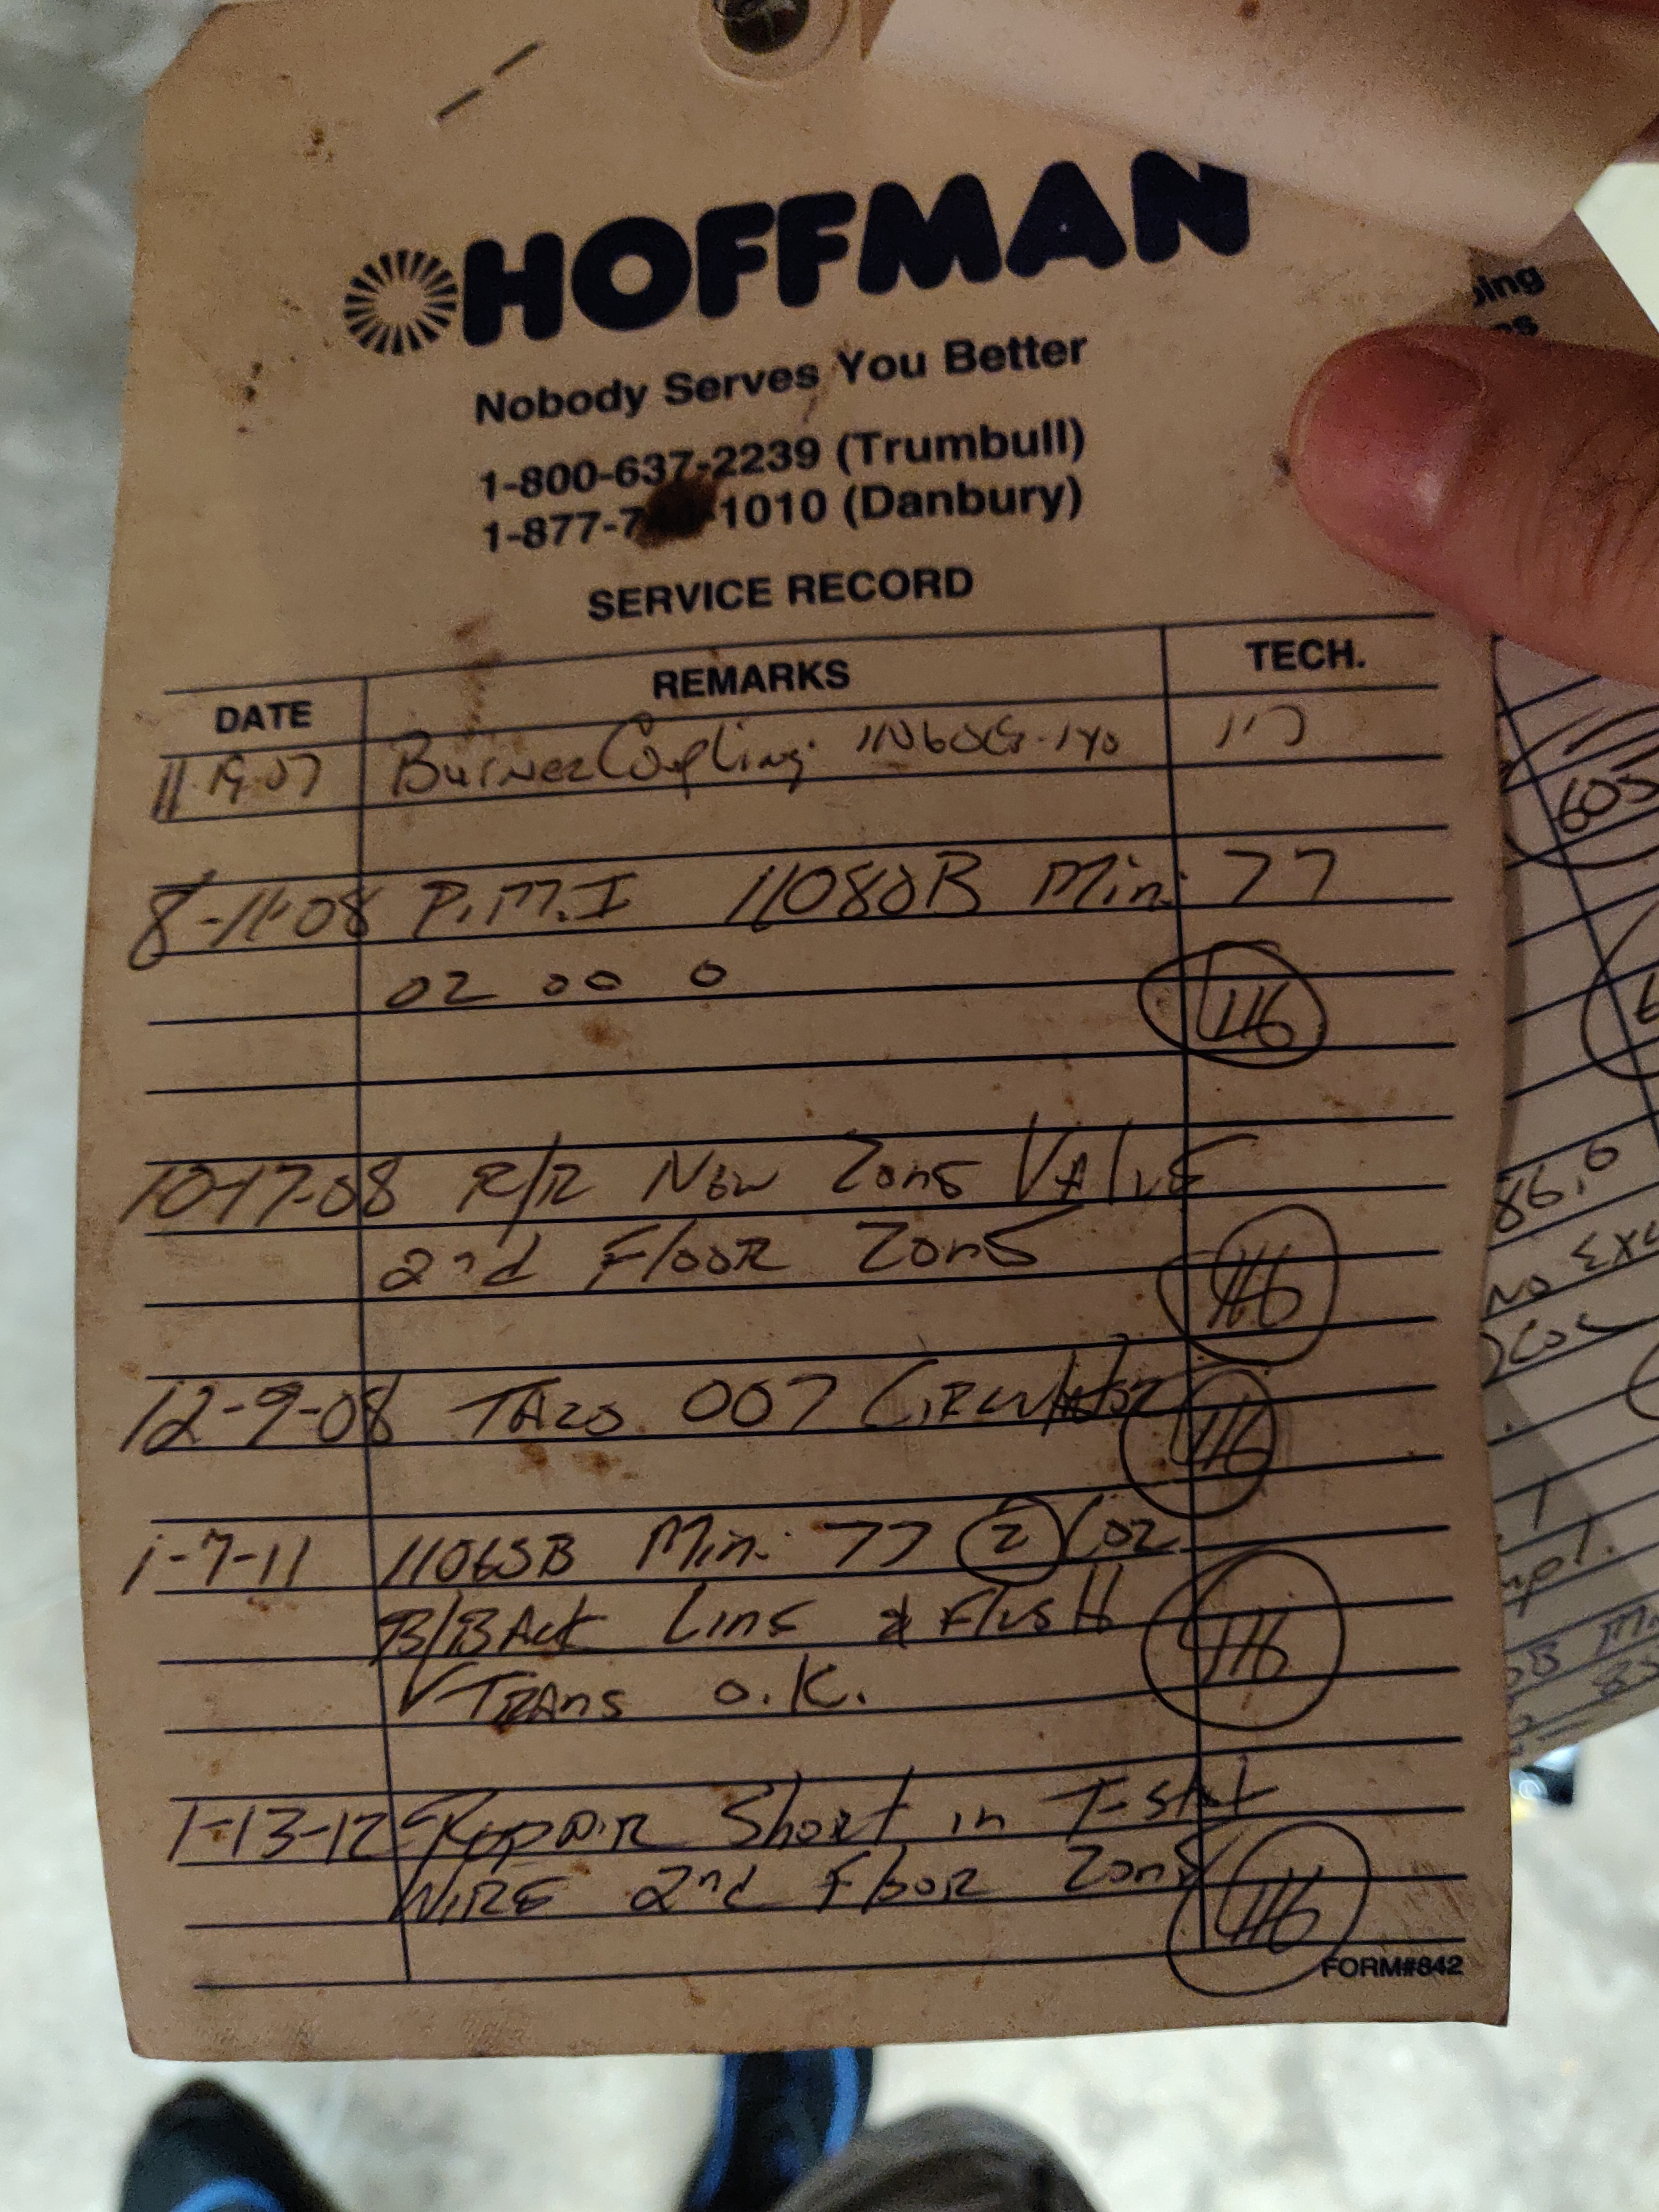 HOFFMAN
Nobody Serves You Better
1-800-637-2239 (Trumbull)
1-877-7 -1010 (Danbury)
SERVICE RECORD
DATE REMARKS TECH.
11-19-07 Burner Coupling 117
8-11-08 P.M.I 11080B Min: 77
02 00 0 116
10-17-08 R/R New Zone Valve
2nd Floor Zone 116
12-9-08 TACO 007 Circulator 116
1-7-11 11065B Min: 77 2 CO2
B/BACK Line & Flush 116
Trans O.K.
1-13-12 Repair Short in T-stat
WIRE 2nd Floor Zone 116
FORM#842
ping
605
86.0
No